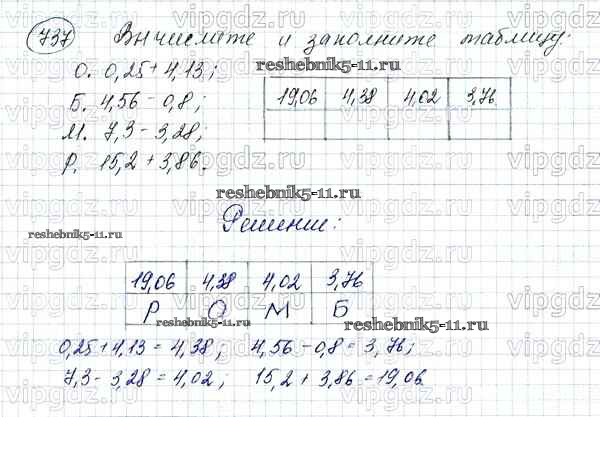 737 Вычислите и заполните таблицу:
О. 0,25 + 4,13;
Б. 4,56 - 0,8;
М. 7,3 - 3,28;
Р. 15,2 + 3,86.
19,06 4,38 4,02 3,76
reshebnik5-11.ru
reshebnik5-11.ru
reshebnik5-11.ru
Решение:
19,06 4,38 4,02 3,76
Р О М Б
reshebnik5-11.ru
0,25 + 4,13 = 4,38; 4,56 - 0,8 = 3,76;
7,3 - 3,28 = 4,02; 15,2 + 3,86 = 19,06.
vipgdz.ru